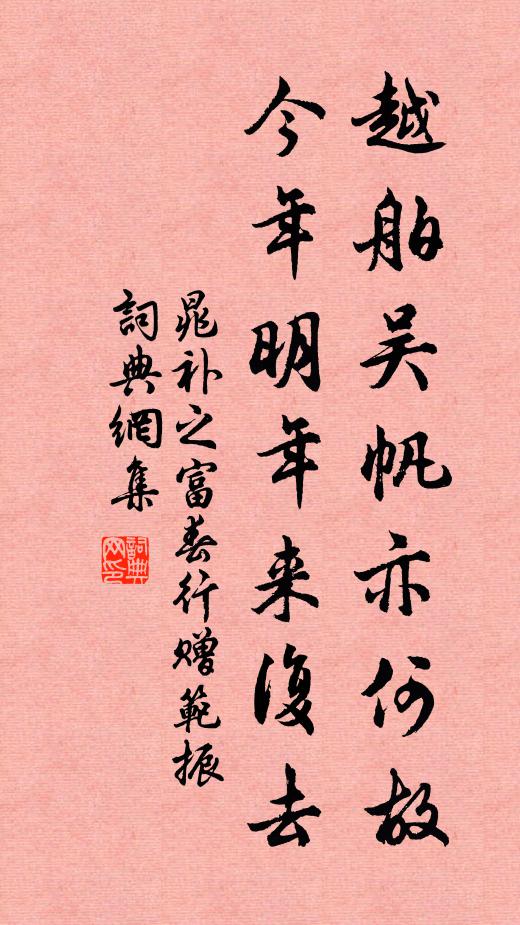 越舶吴帆亦何故
今年明年来復去
晁补之富春行赠範振
詞典網集
詞典网印